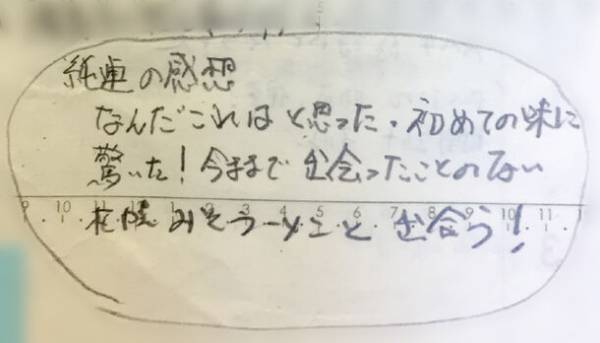 純連の感想
なんだこれは と思った。初めての味に
驚いた!今まで 出会ったことのない
9 10 11 1 2 3 4 5 6 7 8 9 10 11
札幌みそラーメンと 出会う!